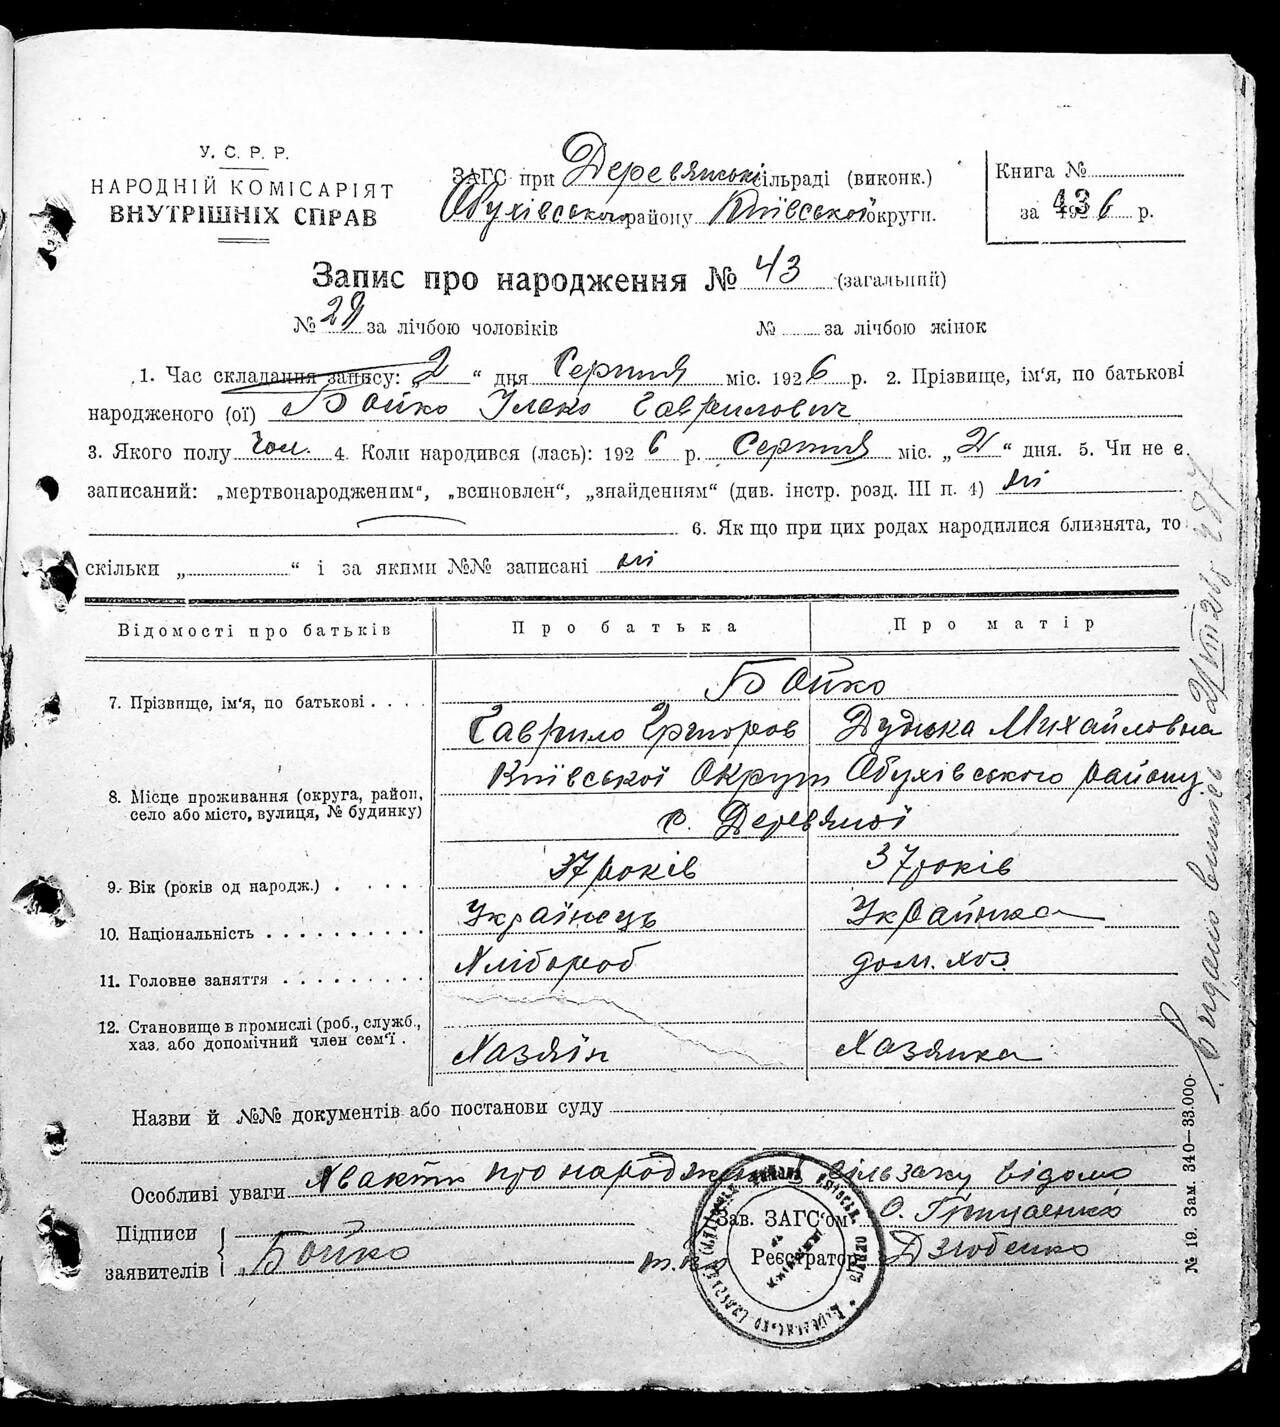 У. С. Р. Р.
НАРОДНІЙ КОМІСАРІЯТ
ВНУТРІШНІХ СПРАВ
ЗАГС при Деревянські сільраді (виконк.)
Обухівського району Київської округи.
Книга №
за 1926 р.
43
Запис про народження № 43 (загальний)
№ 29 за лічбою чоловіків № за лічбою жінок
1. Час складання запису: „2“ дня Серпня міс. 1926 р. 2. Прізвище, ім'я, по батькові
народженого (ої) Бойко Ілько Гаврилович
3. Якого полу чол. 4. Коли народився (лась): 1926 р. Серпня міс. „2“ дня. 5. Чи не є
записаний: „мертвонародженим“, „всиновлен“, „знайденням“ (див. інстр. розд. III п. 4) ні
6. Як що при цих родах народилися близнята, то
скільки „ “ і за якими №№ записані ні
Відомості про батьків Про батька Про матір
7. Прізвище, ім'я, по батькові Бойко
Гаврило Григоров Дунька Михайловна
8. Місце проживання (округа, район, село або місто, вулиця, № будинку) Київської Округи Обухівського району
с. Деревяної
9. Вік (років од народж.) 37 років 37 років
10. Національність Українець Украинка
11. Головне заняття Хлібороб дом. хоз.
12. Становище в промислі (роб., служб., хаз. або допомічний член сем'ї. Хазяїн Хазяйка
Назви й №№ документів або постанови суду
Особливі уваги про народження відомо
Підписи заявителів Бойко
Зав. ЗАГС'ом О. Грищенко
Реєстратор Дзюбенко
№ 19. Зам. 340—33.000.
Видано виписв 2/VIII 26 р.